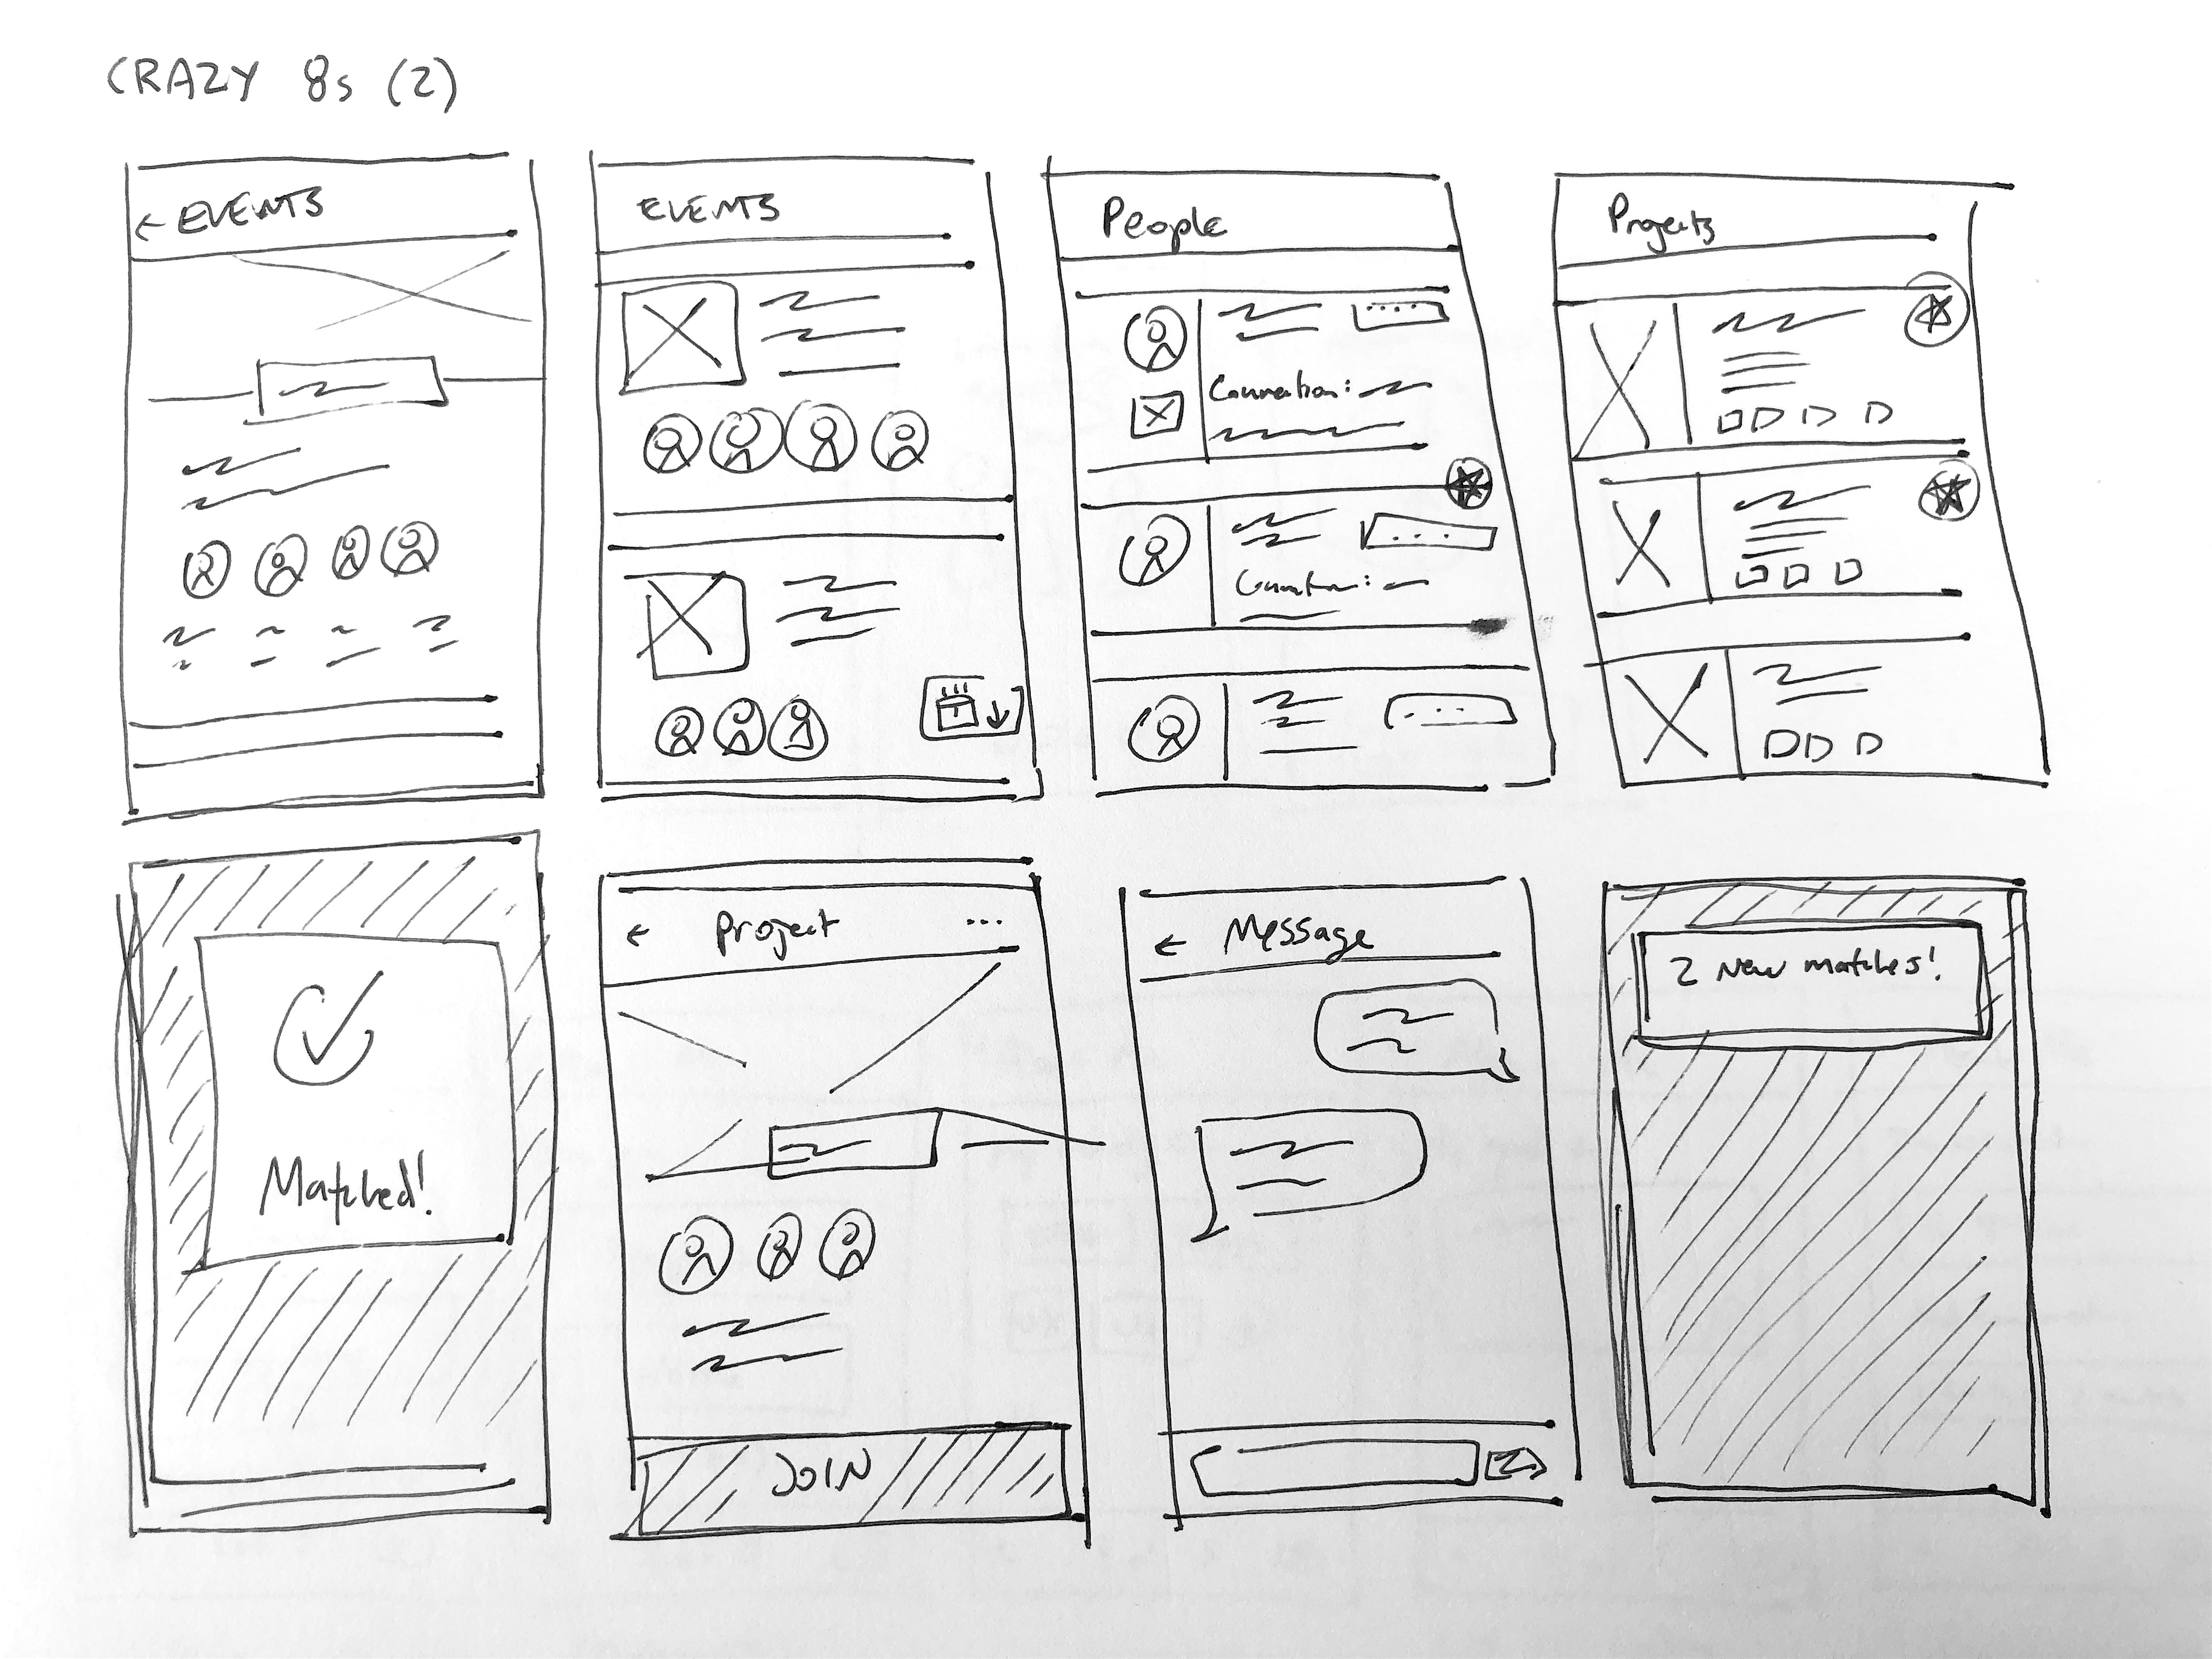 CRAZY 8s (2)
← EVENTS
EVENTS
People
Connection:
Projects
Matched!
← Project ...
JOIN
← Message
2 New matches!